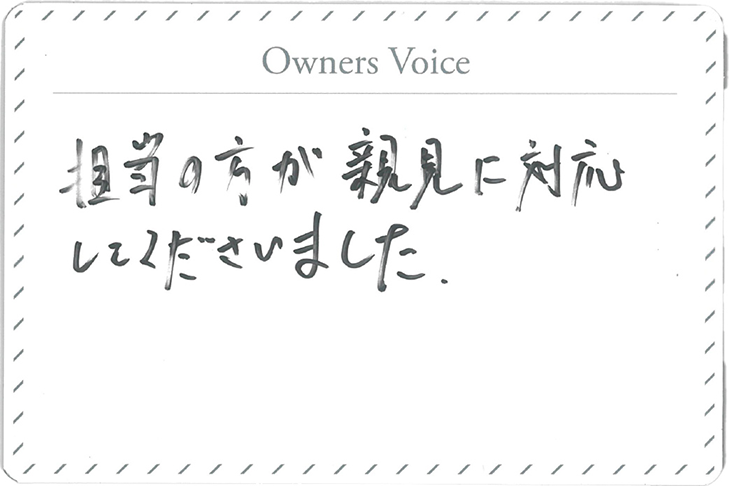 Owners Voice
担当の方が親見に対応
してくださいました.